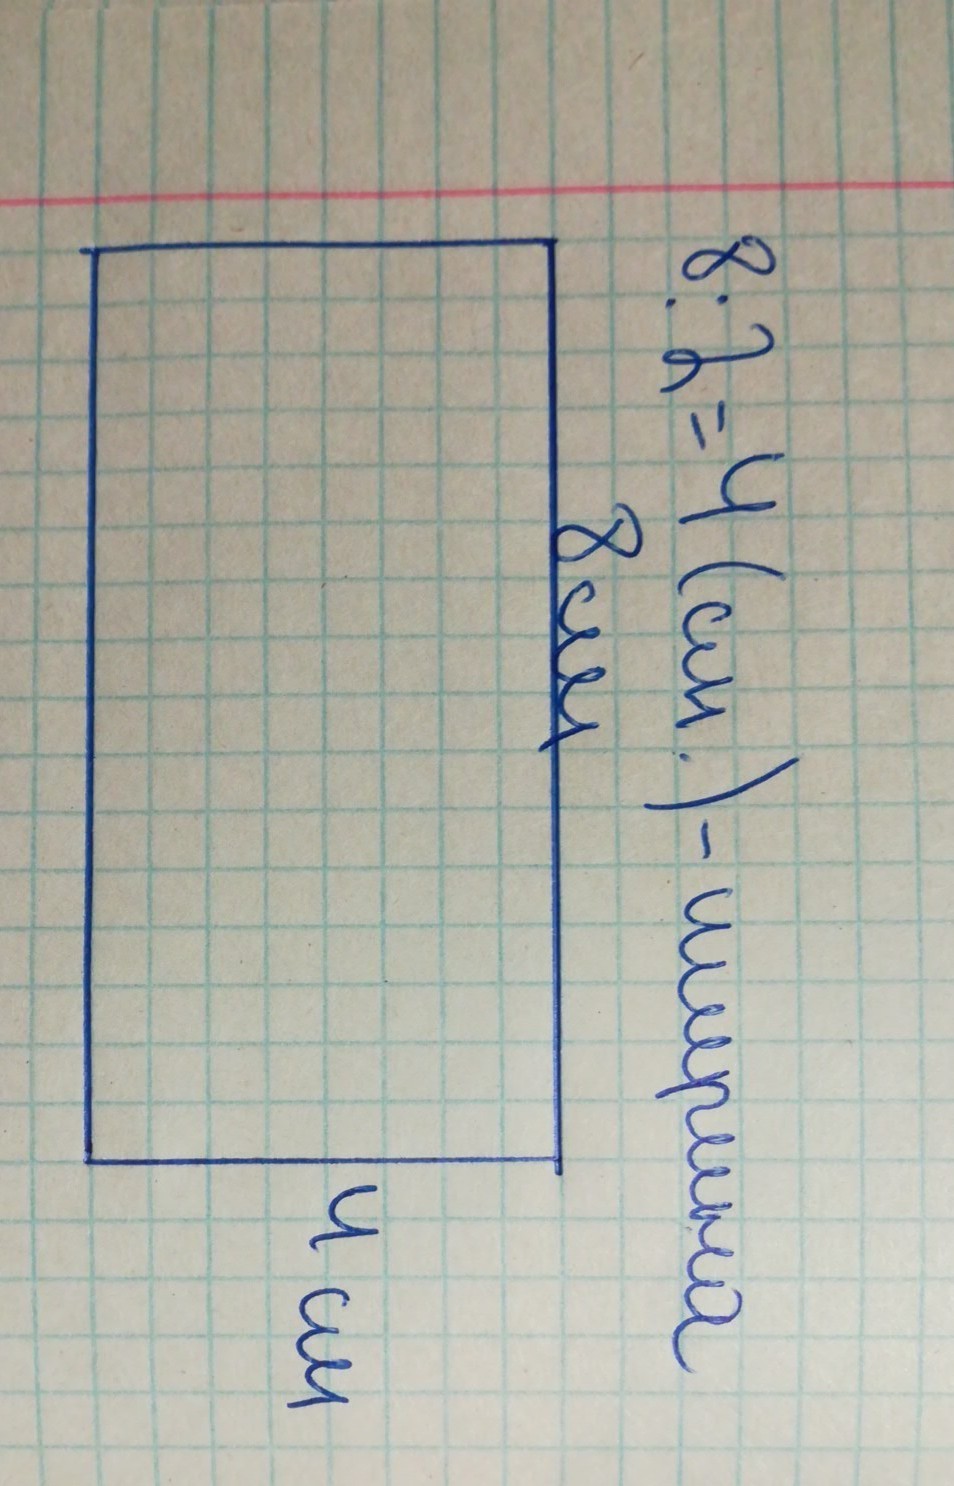 8:2=4(см.)-ширина
8см
4см